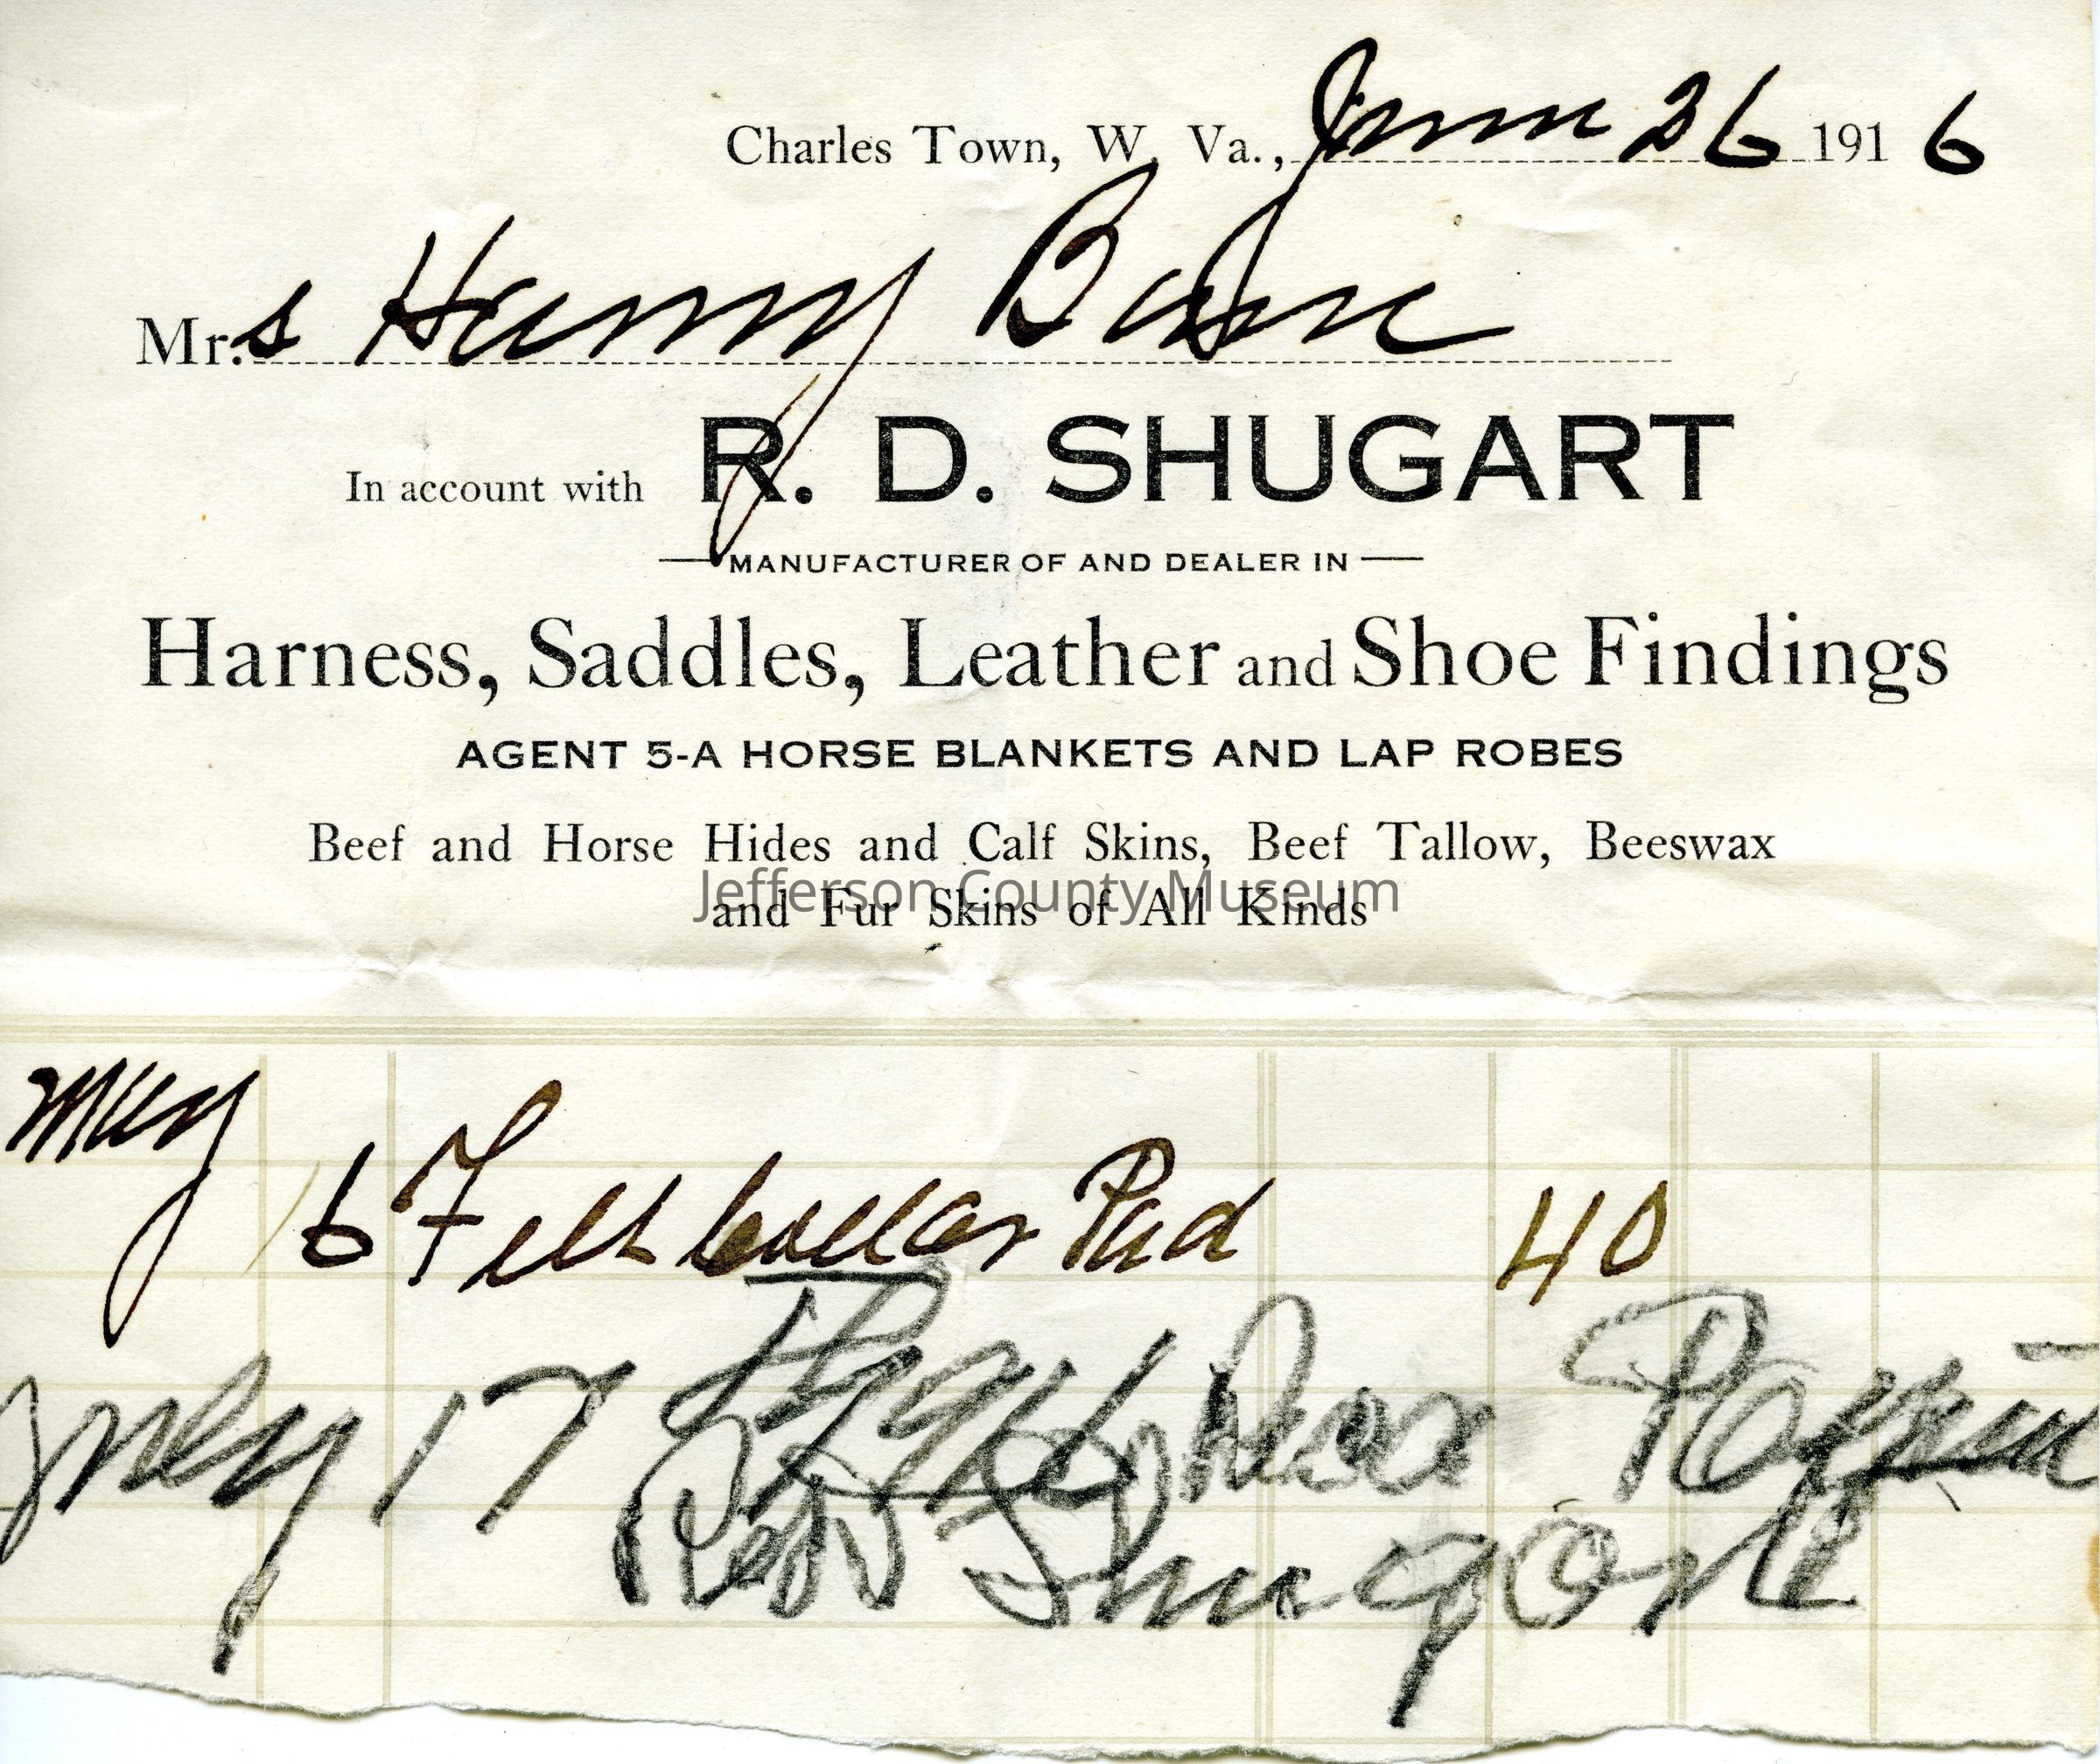 Charles Town, W. Va., June 26 1916
Mr.s Harry
In account with R. D. SHUGART
MANUFACTURER OF AND DEALER IN
Harness, Saddles, Leather and Shoe Findings
AGENT 5-A HORSE BLANKETS AND LAP ROBES
Beef and Horse Hides and Calf Skins, Beef Tallow, Beeswax
Jefferson County Museum
and Fur Skins of All Kinds
May
6 Felt Collar Pad 40
July 17
R D Shugart